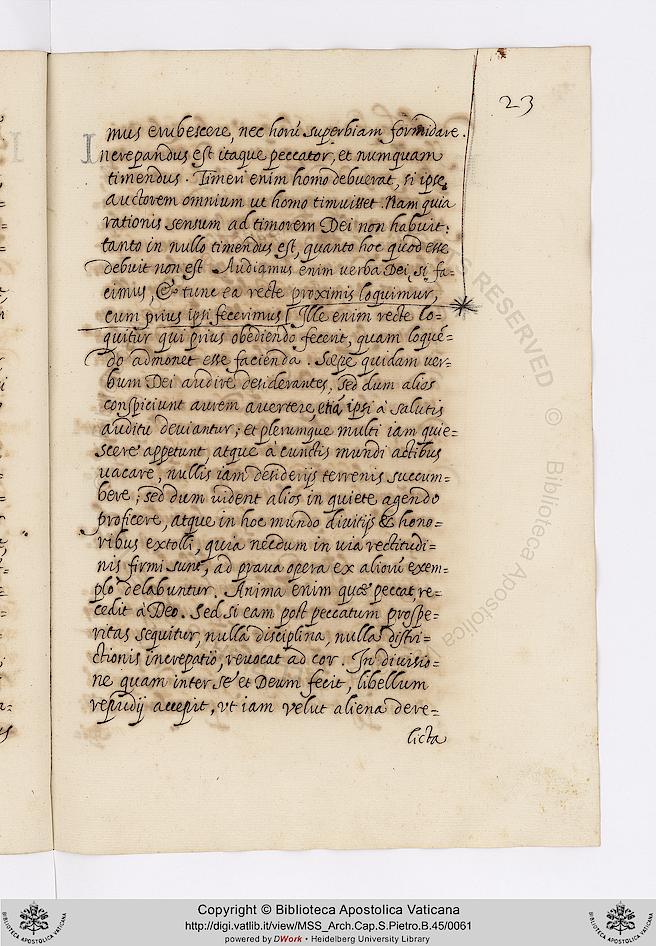 23
mus erubescere, nec horũ superbiam formidare.
Increpandus est itaque peccator, et numquam
timendus. Timeri enim homo debuerat, si ipse
auctorem omnium ut homo timuisset. Nam quia
rationis sensum ad timorem Dei non habuit:
tanto in nullo timendus est, quanto hoc quod esse
debuit non est. Audiamus enim verba Dei, si fa=
cimus, & tunc ea recte proximis loquimur,
cum prius ipsi fecerimus[ Ille enim recte lo=
quitur qui prius obediendo fecerit, quam loquẽ=
do admonet esse facienda. Sæpe quidam ver=
bum Dei audire desiderantes, sed dum alios
conspiciunt aurem avertere, etiã ipsi à salutis
auditu deviantur; et plerumque multi iam quie=
scere appetunt, atque à cunctis mundi actibus
vacare, nullis iam denderijs terrenis succum=
bere; sed dum vident alios in quiete agendo
proficere, atque in hoc mundo divitijs & hono=
ribus extolli, quia necdum in via rectitudi=
nis firmi sunt, ad prava opera ex aliorũ exem=
plo delabuntur. Anima enim quæ peccat, re=
cedit à Deo. Sed si eam post peccatum prospe=
ritas sequitur, nulla disciplina, nulla distri=
ctionis increpatio, revocat ad cor. In divisio=
ne quam inter se et Deum fecit, libellum
repudij accepit, vt iam velut aliena dere=
licta
RIGHTS RESERVED © Biblioteca Apostolica
Copyright © Biblioteca Apostolica Vaticana
http://digi.vatlib.it/view/MSS_Arch.Cap.S.Pietro.B.45/0061
powered by DWork • Heidelberg University Library